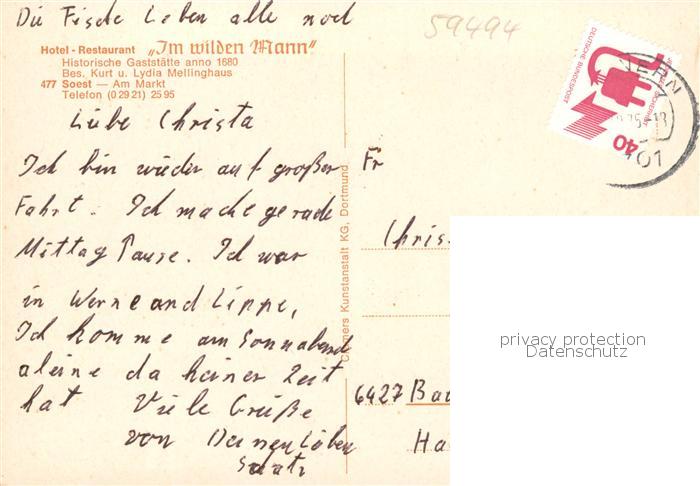 Die Fische Leben alle noch
59494
Hotel - Restaurant „Im wilden Mann"
Historische Gaststätte anno 1680
Bes. Kurt u. Lydia Mellinghaus
477 Soest — Am Markt
Telefon (0 29 21) 25 95
Liebe Christa
Ich bin wieder auf großer
Fahrt. Ich mache gerade
Mittag Pause. Ich war
in Werne and Lippe,
Ich komme am Sonnabend
aleine da keiner Zeit
hat Viele Grüße
von Deinen Lieben
Cramers Kunstanstalt KG, Dortmund
DEUTSCHE BUNDESPOST
40
Fr
Chris
6427 Bad
Ha
privacy protection
Datenschutz